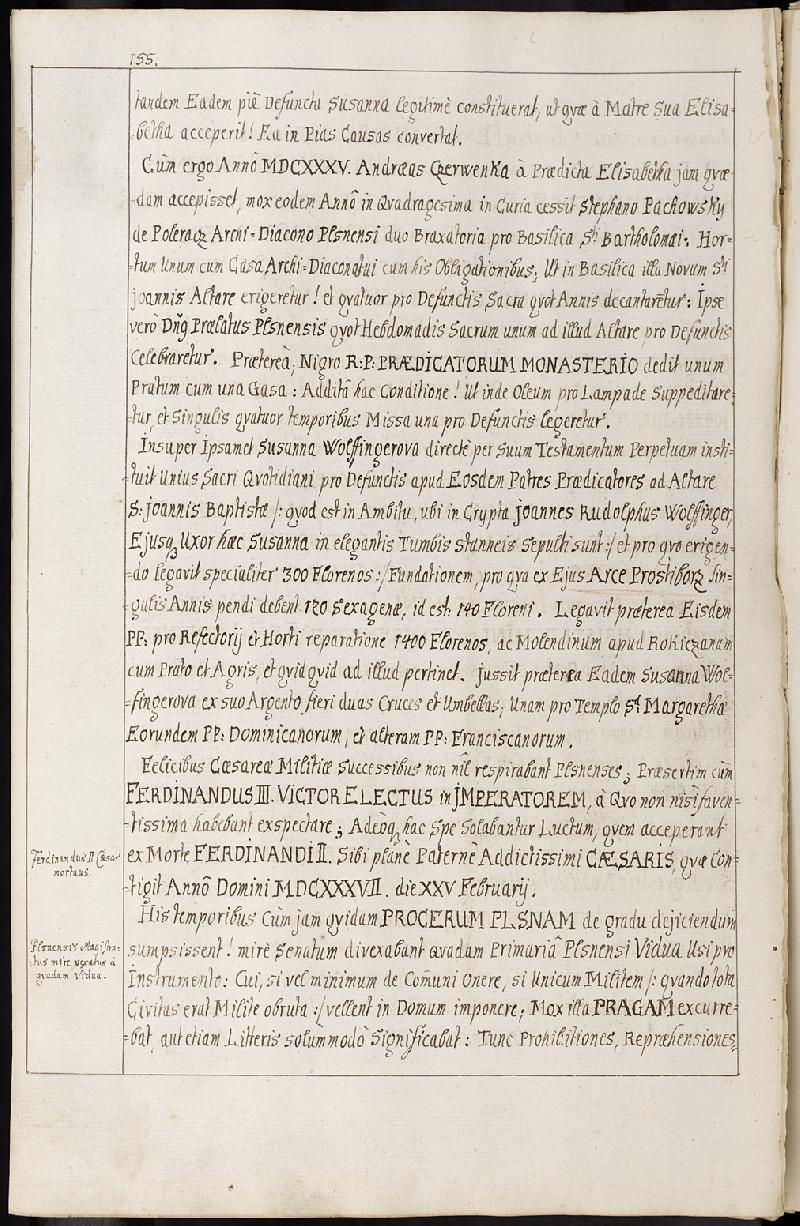 155.
tandem Eadem piè Defuncta Susanna legitimè constituerat, ut qvæ à Matre Sua Elisa-
betha acceperit! Ea in Pias Causas convertat.
Cùm ergo Annô MDCXXXV. Andræas Czerwenka à Prædicta Elisabetha jam qvæ-
dam accepisset, mox eodem Annô in Qvadragesima in Curia cessit Stephano Pachowsky
de Poleracz Archi-Diacono Plsnensi duo Braxatoria pro Basilica S^ti Bartholomæi. Hor-
tum Unum cum Casa Archi-Diaconatui cum his Obligationibus; Ut in Basilica illa Novum S^ti
Joannis Altare erigeretur! et qvatuor pro Defunctis Sacra qvot Annis decantarētur: Ipse
verò Dnq Prælatus Plsnensis qvot Hebdomadis Sacrum unum ad illud Altare pro Defunctis
Celebraretur. Præterea, Nigro R:P: PRÆDICATORUM MONASTERIO dedit unum
Pratum cum una Casa: Additâ hac Conditione! Ut inde Oleum pro Lampade Suppeditare-
tur, et Singulis qvatuor temporibus Missa una pro Defunctis legeretur.
Insuper Ipsamet Susanna Wolffingerova directè per Suum Testamentum Perpetuam insti-
tuit Unius Sacri Qvotidiani pro Defunctis apud Eosdem Patres Prædicatores ad Altare
S: Joannis Baptistæ /: qvod est in Ambitu, ubi in Crypta Joannes Rudolphus Wolffinger,
Ejusq Uxor hæc Susanna in elegantis Tumbis stanneis Sepulti sunt :/ et pro qvo erigen-
do legavit specialiter 300 Florenos :/ Fundationem, pro qva ex Ejus Arce Prostiborz Sin-
gulis Annis pendi debent 120 Sexagenæ, id est: 140 Floreni. Legavit præterea Eisdem
PP: pro Refectorij et Horti reparatione 1400 Florenos, ac Molendinum apud Rokiczanam
cum Prato et Agris, et qvidqvid ad illud pertinet. Jussit præterea Eadem Susanna Wol-
fingerova ex suo Argento fieri duas Cruces et Umbellas; Unam pro Templo S^t Margarethæ
Eorundem PP: Dominicanorum, et alteram PP: Franciscanorum.
Felicibus Cæsareæ Militiæ Successibus non nil respirabant Plsnenses; Præsertim cùm
FERDINANDUS III. VICTOR ELECTUS in IMPERATOREM, à Qvo non nisi faven-
tissima habebant exspectare; Adeoq hac Spe Solabantur Luctum, qvem acceperant
ex Morte FERDINANDI II. Sibi planè Paternè Addictissimi CÆSARIS, qvæ Con-
tigit Annô Domini MDCXXXVII. die XXV Februarij.
His temporibus Cùm jam qvidam PROCERUM PLSNAM de gradu dejiciendum
sumpsissent! mirè Senatum divexabant Qvadam Primariâ Plsnensi Viduâ Usi pro
Instrumento: Cui, si vel minimum de Com̄uni Onere, si Unicum Militem /: qvando tota
Civitas erat Milite obruta :/ vellent in Domum imponere; Mox illa PRAGAM excurre-
bat, aut etiam Litteris solummodò Significabat: Tunc Prohibitiones, Repræhensiones,
Ferdinandus II Cæsar
mortuus.
Plsnensis Magistra-
tus mire vexatus à
qvadam Vidua.